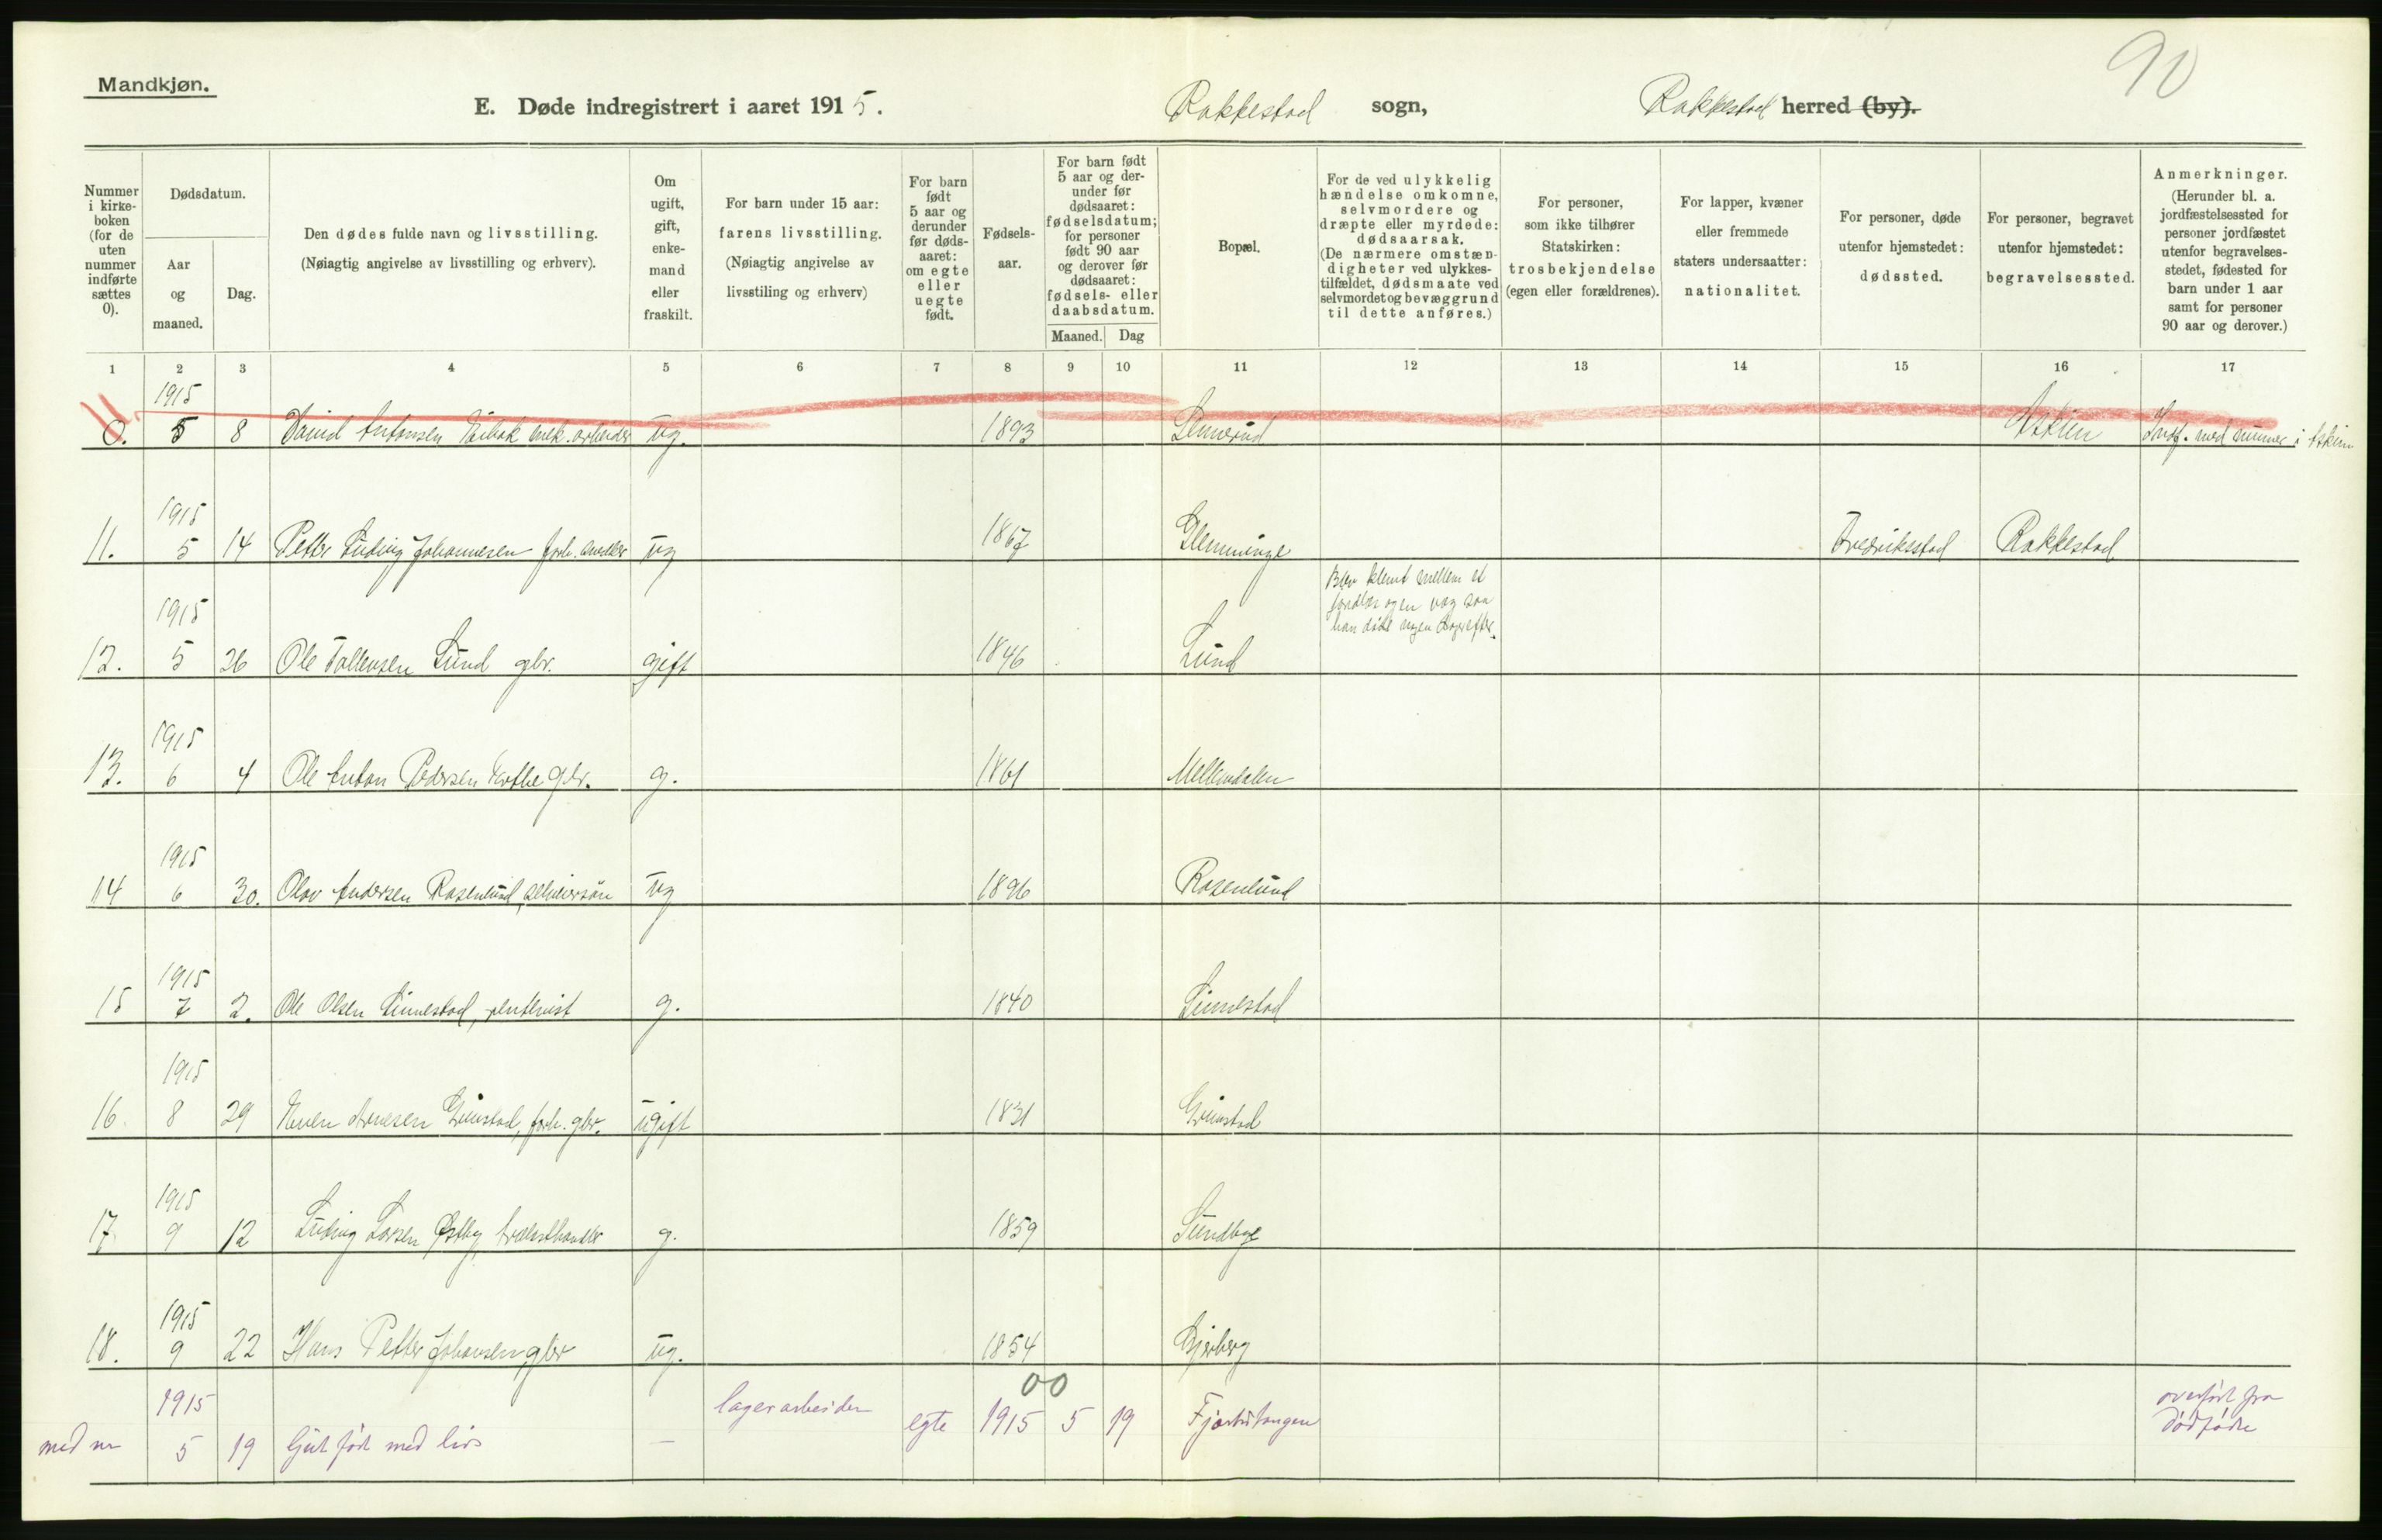 90
Mandkjøn.
E. Døde indregistrert i aaret 1915. Rakkestad sogn, Rakkestad herred (by).
Nummer i kirke-boken (for de uten nummer indførte sættes 0).
Dødsdatum.
Aar og maaned.
Dag.
Den dødes fulde navn og livsstilling.
(Nøiagtig angivelse av livsstilling og erhverv).
Om ugift, gift, enke-mand eller fraskilt.
For barn under 15 aar:
farens livsstilling.
(Nøiagtig angivelse av livsstiling og erhverv)
For barn født 5 aar og derunder før døds-aaret: om egte eller uegte født.
Fødsels-aar.
For barn født 5 aar og der-under før dødsaaret: fødselsdatum; for personer født 90 aar og derover før dødsaaret: fødsels- eller daabsdatum.
Maaned. Dag
Bopæl.
For de ved ulykkelig hændelse omkomne, selvmordere og dræpte eller myrdede: dødsaarsak. (De nærmere omstæn-digheter ved ulykkes-tilfældet, dødsmaate ved selvmordet og bevæggrund til dette anføres.)
For personer, som ikke tilhører Statskirken: trosbekjendelse (egen eller forældrenes).
For lapper, kvæner eller fremmede staters undersaatter: nationalitet.
For personer, døde utenfor hjemstedet: dødssted.
For personer, begravet utenfor hjemstedet: begravelsessted.
Anmerkninger.
(Herunder bl. a. jordfæstelsessted for personer jordfæstet utenfor begravelses-stedet, fødested for barn under 1 aar samt for personer 90 aar og derover.)
1 2 3 4 5 6 7 8 9 10 11 12 13 14 15 16 17
1915
0. 5 8 David Antonsen mek. arbeider ug. 1893 Askim Jordf. med nummer i Askim
1915
11. 5 14 Petter Ludvig Johannesen forh. snedker ug 1867 Glemminge Fredriksstad Rakkestad
Blev klemt mellem et
og en væg saa
han døde nogen dager efter.
1915
12. 5 26 Ole Tollevsen Lund gbr. gift 1846 Lund
1915
13. 6 4 Ole Anton Pedersen gbr. g. 1861 Mellemdalen
1915
14 6 30. Olav Andersen Rosenlund, ug 1896 Rosenlund
1915
15 7 2. Ole Olsen Linnestad, rentenist g. 1840 Linnestad
1915
16. 8 29 Arnesen Grimstad, forh. gbr. ugift 1831 Grimstad
1915
17 9 12 Ludvig Larsen Østby, trælasthandler g. 1859 Sundbye
1915
18. 9 22 Hans Petter Johansen, gbr ug. 1854 Bjerberg
00
1915 lagerarbeider overført fra
med nr 5 19 Gut født med liv — egte 1915 5 19 dødfødte